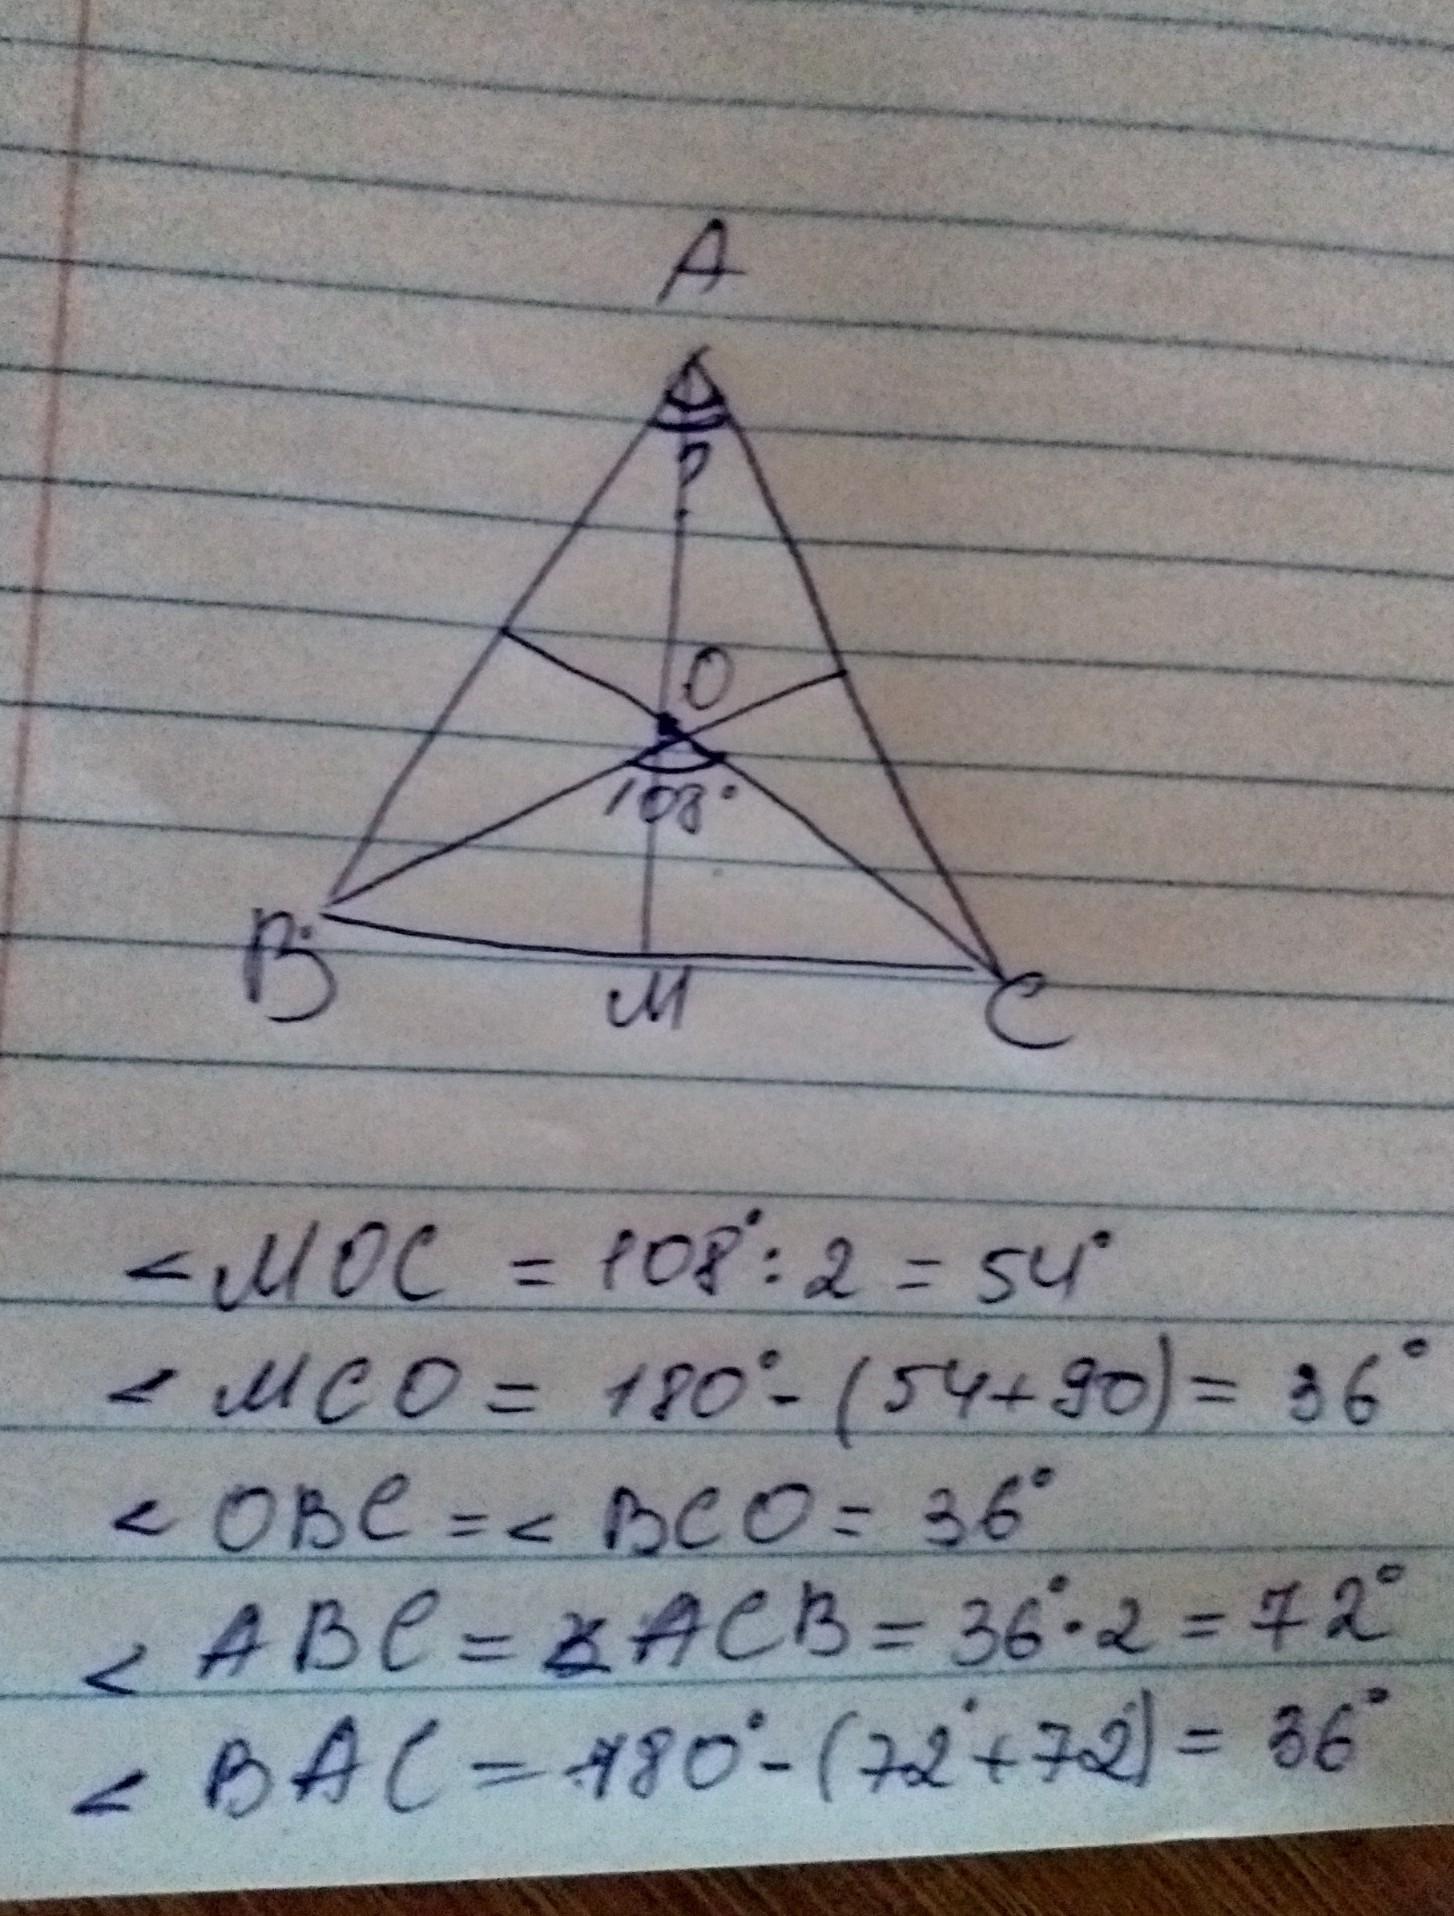 A
?
O
108°
B
M
C
< MOC = 108° : 2 = 54°
< MCO = 180° - (54+90) = 36°
< OBC = < BCO = 36°
< ABC = < ACB = 36° · 2 = 72°
< BAC = 180° - (72° + 72) = 36°